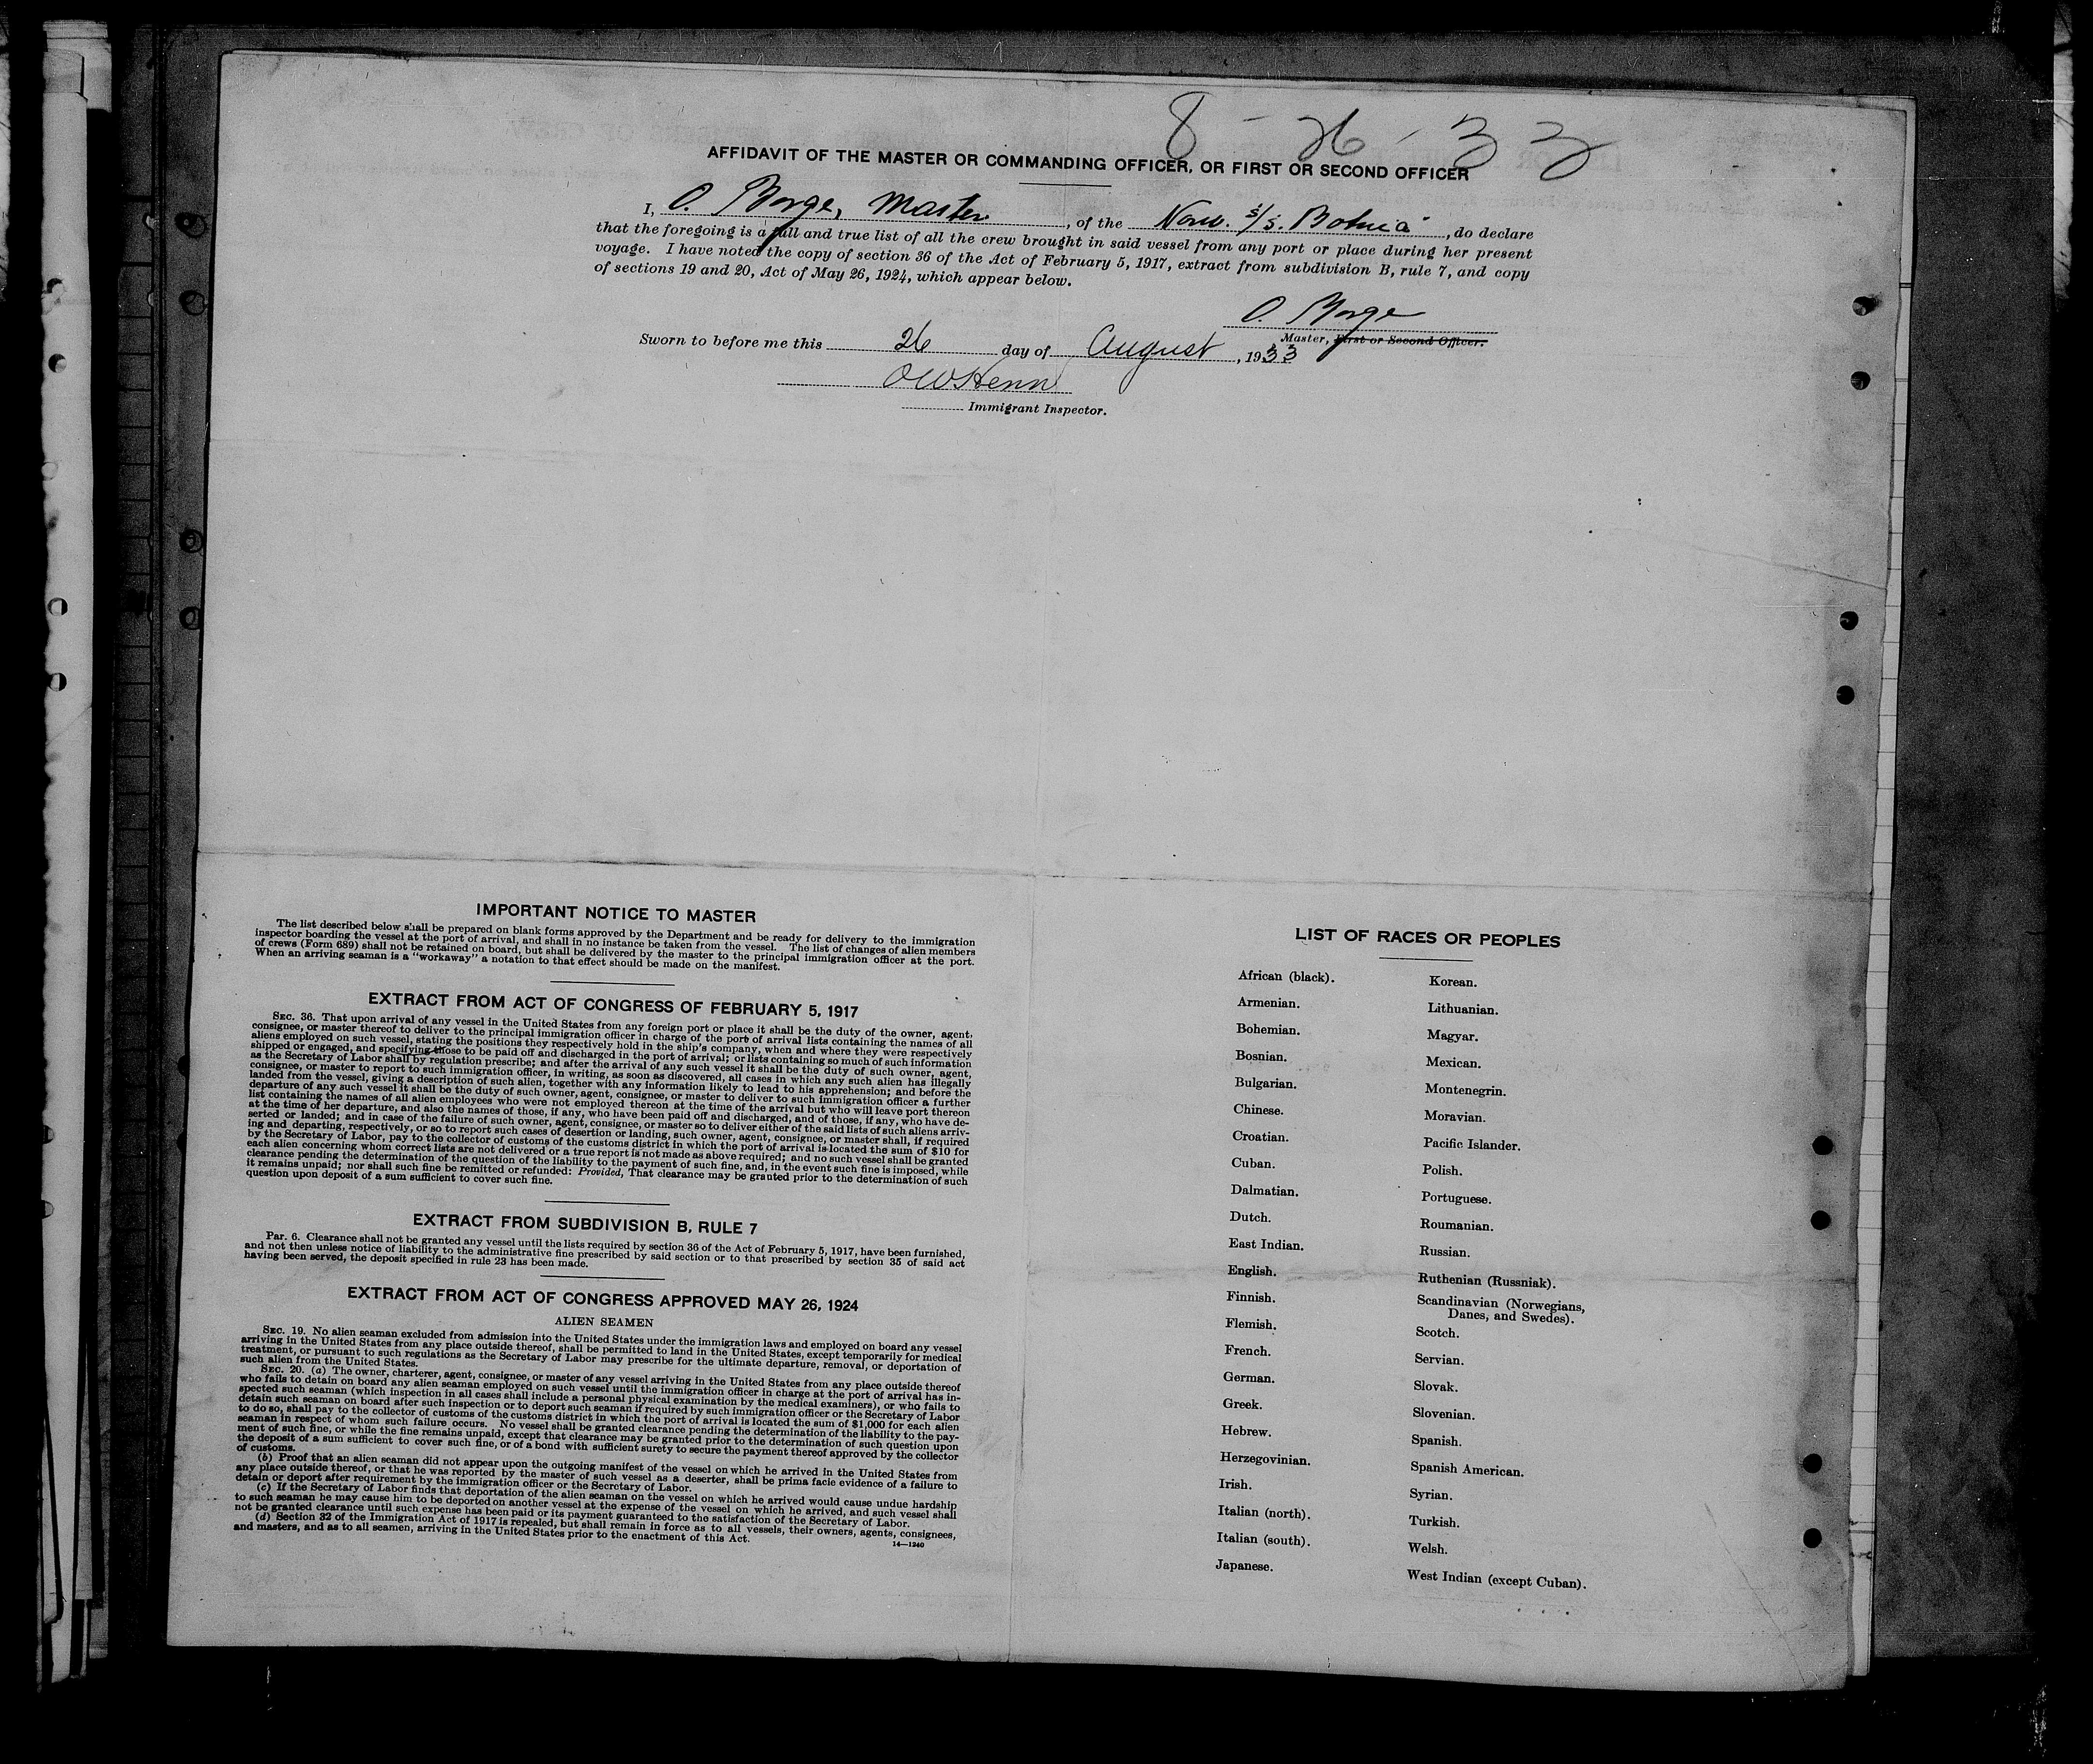 8-26-33
AFFIDAVIT OF THE MASTER OR COMMANDING OFFICER, OR FIRST OR SECOND OFFICER
I, O. Borge, Master, of the Norw. s/s. Botnia, do declare
that the foregoing is a full and true list of all the crew brought in said vessel from any port or place during her present
voyage. I have noted the copy of section 36 of the Act of February 5, 1917, extract from subdivision B, rule 7, and copy
of sections 19 and 20, Act of May 26, 1924, which appear below.
O. Borge
Master, First or Second Officer.
Sworn to before me this 26 day of August, 1933
OWHenn
Immigrant Inspector.
IMPORTANT NOTICE TO MASTER
The list described below shall be prepared on blank forms approved by the Department and be ready for delivery to the immigration
inspector boarding the vessel at the port of arrival, and shall in no instance be taken from the vessel. The list of changes of alien members
of crews (Form 689) shall not be retained on board, but shall be delivered by the master to the principal immigration officer at the port.
When an arriving seaman is a "workaway" a notation to that effect should be made on the manifest.
EXTRACT FROM ACT OF CONGRESS OF FEBRUARY 5, 1917
SEC. 36. That upon arrival of any vessel in the United States from any foreign port or place it shall be the duty of the owner, agent,
consignee, or master thereof to deliver to the principal immigration officer in charge of the port of arrival lists containing the names of all
aliens employed on such vessel, stating the positions they respectively hold in the ship's company, when and where they were respectively
shipped or engaged, and specifying those to be paid off and discharged in the port of arrival; or lists containing so much of such information
as the Secretary of Labor shall by regulation prescribe; and after the arrival of any such vessel it shall be the duty of such owner, agent,
consignee, or master to report to such immigration officer, in writing, as soon as discovered, all cases in which any such alien has illegally
landed from the vessel, giving a description of such alien, together with any information likely to lead to his apprehension; and before the
departure of any such vessel it shall be the duty of such owner, agent, consignee, or master to deliver to such immigration officer a further
list containing the names of all alien employees who were not employed thereon at the time of the arrival but who will leave port thereon
at the time of her departure, and also the names of those, if any, who have been paid off and discharged, and of those, if any, who have de-
serted or landed; and in case of the failure of such owner, agent, consignee, or master so to deliver either of the said lists of such aliens arriv-
ing and departing, respectively, or so to report such cases of desertion or landing, such owner, agent, consignee, or master shall, if required
by the Secretary of Labor, pay to the collector of customs of the customs district in which the port of arrival is located the sum of $10 for
each alien concerning whom correct lists are not delivered or a true report is not made as above required; and no such vessel shall be granted
clearance pending the determination of the question of the liability to the payment of such fine, and, in the event such fine is imposed, while
it remains unpaid; nor shall such fine be remitted or refunded: Provided, That clearance may be granted prior to the determination of such
question upon deposit of a sum sufficient to cover such fine.
EXTRACT FROM SUBDIVISION B, RULE 7
Par. 6. Clearance shall not be granted any vessel until the lists required by section 36 of the Act of February 5, 1917, have been furnished,
and not then unless notice of liability to the administrative fine prescribed by said section or to that prescribed by section 35 of said act
having been served, the deposit specified in rule 23 has been made.
EXTRACT FROM ACT OF CONGRESS APPROVED MAY 26, 1924
ALIEN SEAMEN
SEC. 19. No alien seaman excluded from admission into the United States under the immigration laws and employed on board any vessel
arriving in the United States from any place outside thereof, shall be permitted to land in the United States, except temporarily for medical
treatment, or pursuant to such regulations as the Secretary of Labor may prescribe for the ultimate departure, removal, or deportation of
such alien from the United States.
SEC. 20. (a) The owner, charterer, agent, consignee, or master of any vessel arriving in the United States from any place outside thereof
who fails to detain on board any alien seaman employed on such vessel until the immigration officer in charge at the port of arrival has in-
spected such seaman (which inspection in all cases shall include a personal physical examination by the medical examiners), or who fails to
detain such seaman on board after such inspection or to deport such seaman if required by such immigration officer or the Secretary of Labor
to do so, shall pay to the collector of customs of the customs district in which the port of arrival is located the sum of $1,000 for each alien
seaman in respect of whom such failure occurs. No vessel shall be granted clearance pending the determination of the liability to the pay-
ment of such fine, or while the fine remains unpaid, except that clearance may be granted prior to the determination of such question upon
the deposit of a sum sufficient to cover such fine, or of a bond with sufficient surety to secure the payment thereof approved by the collector
of customs.
(b) Proof that an alien seaman did not appear upon the outgoing manifest of the vessel on which he arrived in the United States from
any place outside thereof, or that he was reported by the master of such vessel as a deserter, shall be prima facie evidence of a failure to
detain or deport after requirement by the immigration officer or the Secretary of Labor.
(c) If the Secretary of Labor finds that deportation of the alien seaman on the vessel on which he arrived would cause undue hardship
to such seaman he may cause him to be deported on another vessel at the expense of the vessel on which he arrived, and such vessel shall
not be granted clearance until such expense has been paid or its payment guaranteed to the satisfaction of the Secretary of Labor.
(d) Section 32 of the Immigration Act of 1917 is repealed, but shall remain in force as to all vessels, their owners, agents, consignees,
and masters, and as to all seamen, arriving in the United States prior to the enactment of this Act.
14—1240
LIST OF RACES OR PEOPLES
African (black).
Armenian.
Bohemian.
Bosnian.
Bulgarian.
Chinese.
Croatian.
Cuban.
Dalmatian.
Dutch.
East Indian.
English.
Finnish.
Flemish.
French.
German.
Greek.
Hebrew.
Herzegovinian.
Irish.
Italian (north).
Italian (south).
Japanese.
Korean.
Lithuanian.
Magyar.
Mexican.
Montenegrin.
Moravian.
Pacific Islander.
Polish.
Portuguese.
Roumanian.
Russian.
Ruthenian (Russniak).
Scandinavian (Norwegians,
Danes, and Swedes).
Scotch.
Servian.
Slovak.
Slovenian.
Spanish.
Spanish American.
Syrian.
Turkish.
Welsh.
West Indian (except Cuban).